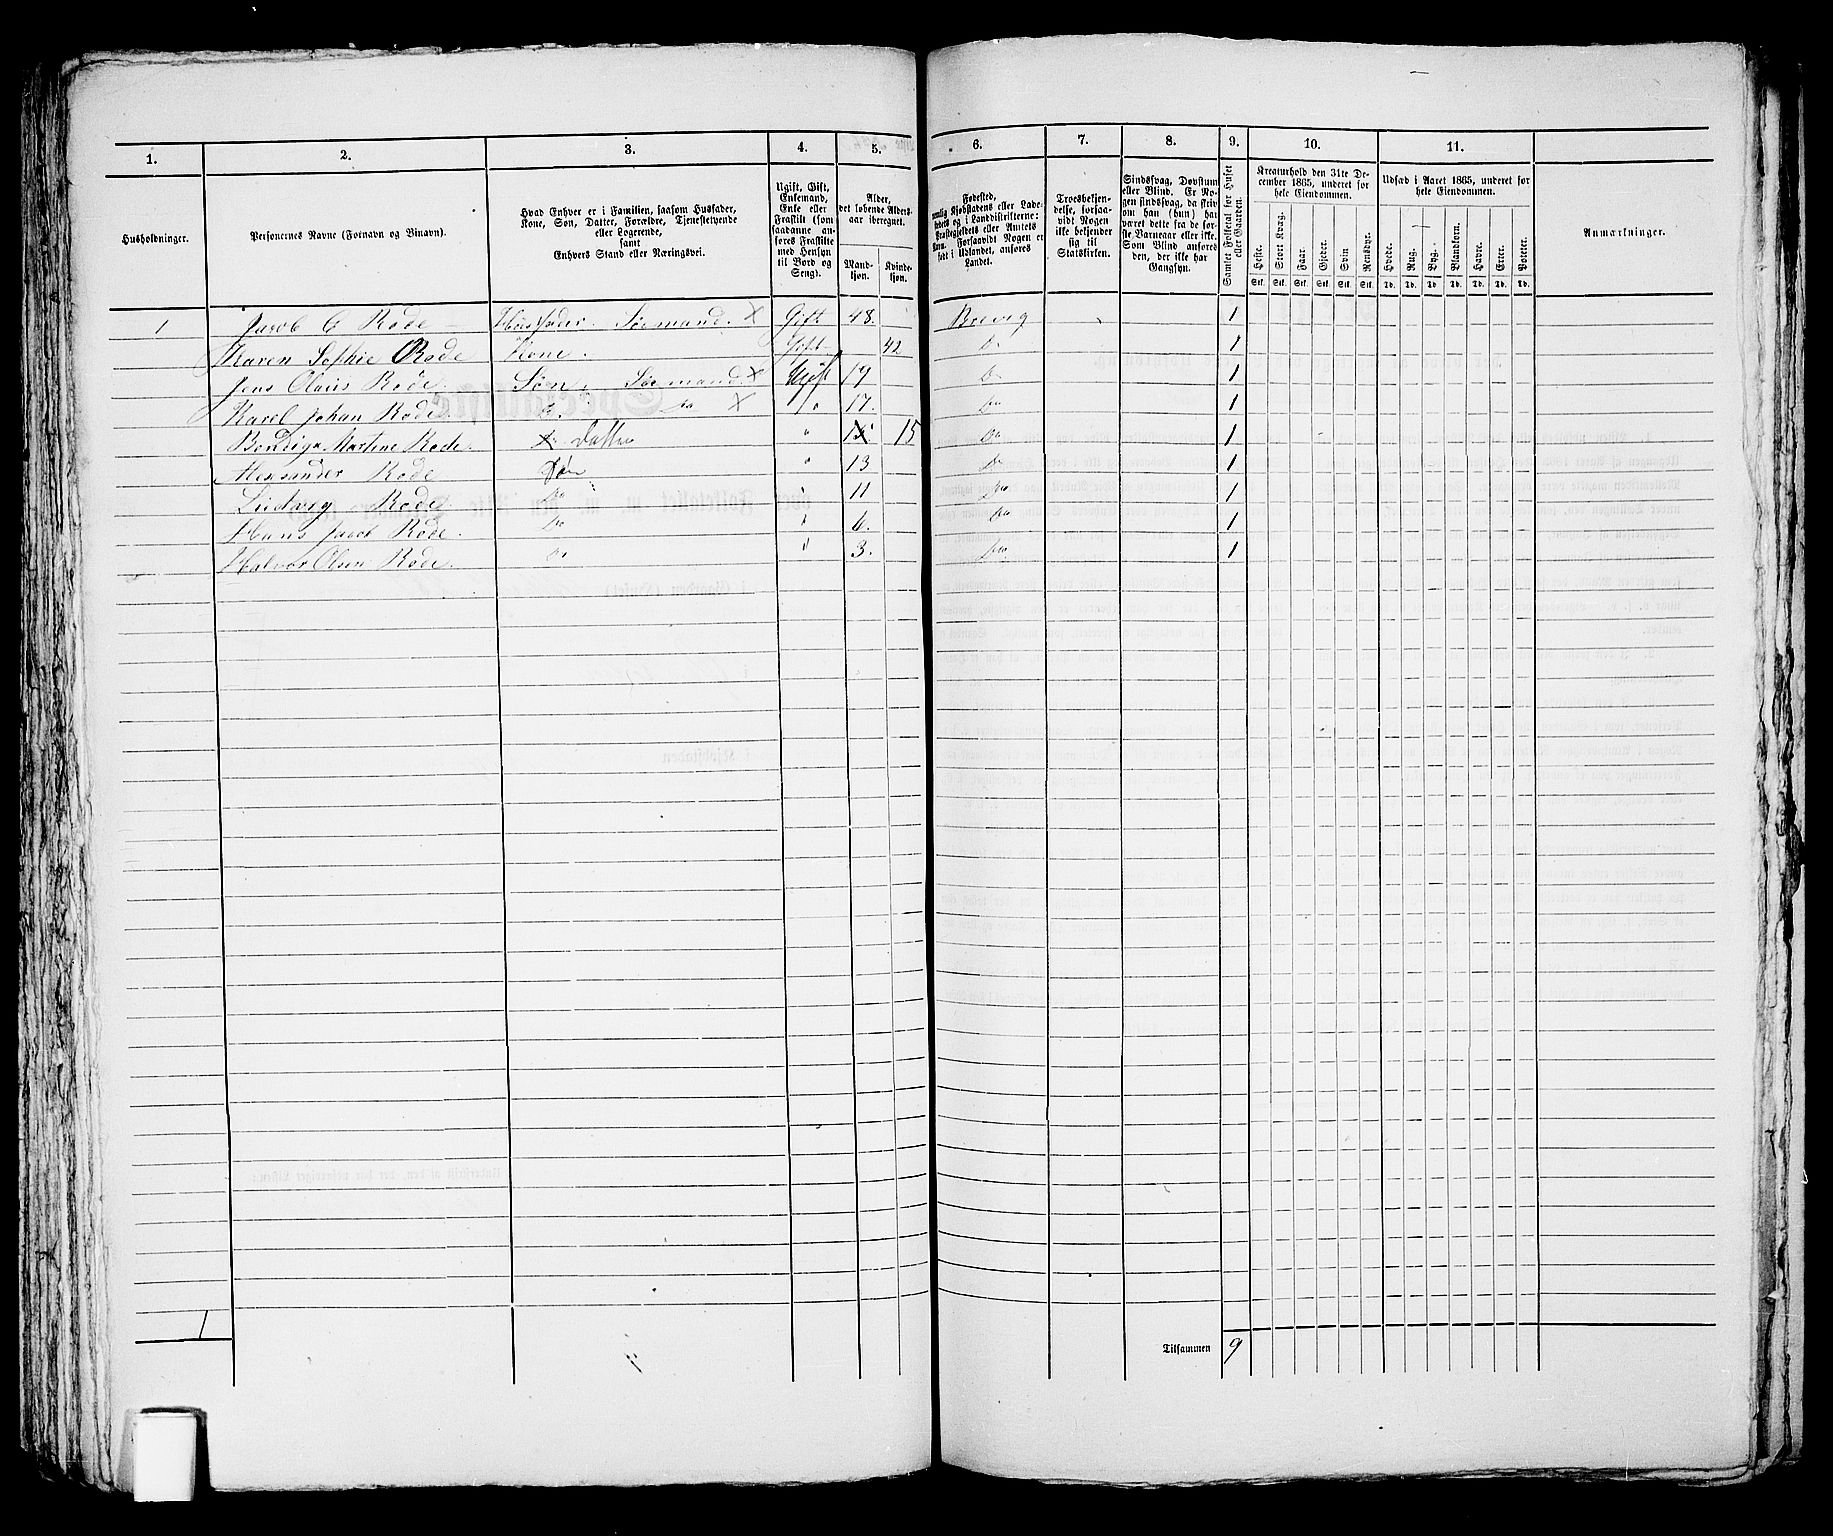 1. 2. 3. 4. 5. 6. 7. 8. 9. 10. 11.
Husholdninger.
Personernes Navne (Fornavn og Binavn).
Hvad Enhver er i Familien, saasom Husfader,
Kone, Søn, Datter, Forældre, Tjenestetyende
eller Logerende,
samt
Enhvers Stand eller Næringsvei.
Ugift, Gift,
Enkemand,
Enke eller
Fraskilt (som
saadanne an-
føres Fraskilte
med Hensyn
til Bord og
Seng).
Alder,
det løbende Alders-
aar iberegnet.
Mand-
kjøn.
Kvinde-
kjøn.
Fødested,
Landet.
Troesbekjen-
delse, forsaa-
vidt Nogen
ikke bekjender
sig til
Statskirken.
Sindssvag, Døvstum
eller Blind. Er No-
gen sindssvag, da skriv
om han (hun) har
været dette fra de før-
ste Barneaar eller ikke.
Som Blind anføres
den, der ikke har
Gangsyn.
Samlet Folketal for Huset
eller Gaarden.
Kreaturhold den 31te De-
cember 1865, underet for
hele Eiendommen.
Heste. Stort Kvæg. Faar. Gjeder. Svin Rensdyr.
Stk. Stk. Stk. Stk. Stk. Stk.
Udsæd i Aaret 1865, underet for
hele Eiendommen.
Hvede. Rug. Byg. Blandkorn. Havre. Erter. Poteter.
Td. Td. Td. Td. Td. Td. Td.
Anmærkninger.
1 Jacob C Rode Husfader. Sømand. X Gift 48. Brevig 1
Karen Sophie Rode Kone. Gift 42 Do 1
Jens Olaus Rode. Søn. Sømand. X Ugift 19 Do 1
Karel Johan Rode. Do. Do X " 17. Do 1
Martine Rode. Datter " 15 Do 1
Alexander Rode Søn " 13 Do 1
Ludvig Rode. Do " 11 Do 1
Hans Jacob Rode. Do " 6. Do 1
Halvor Olsen Rode. Do " 3. Do 1
1
Tilsammen 9